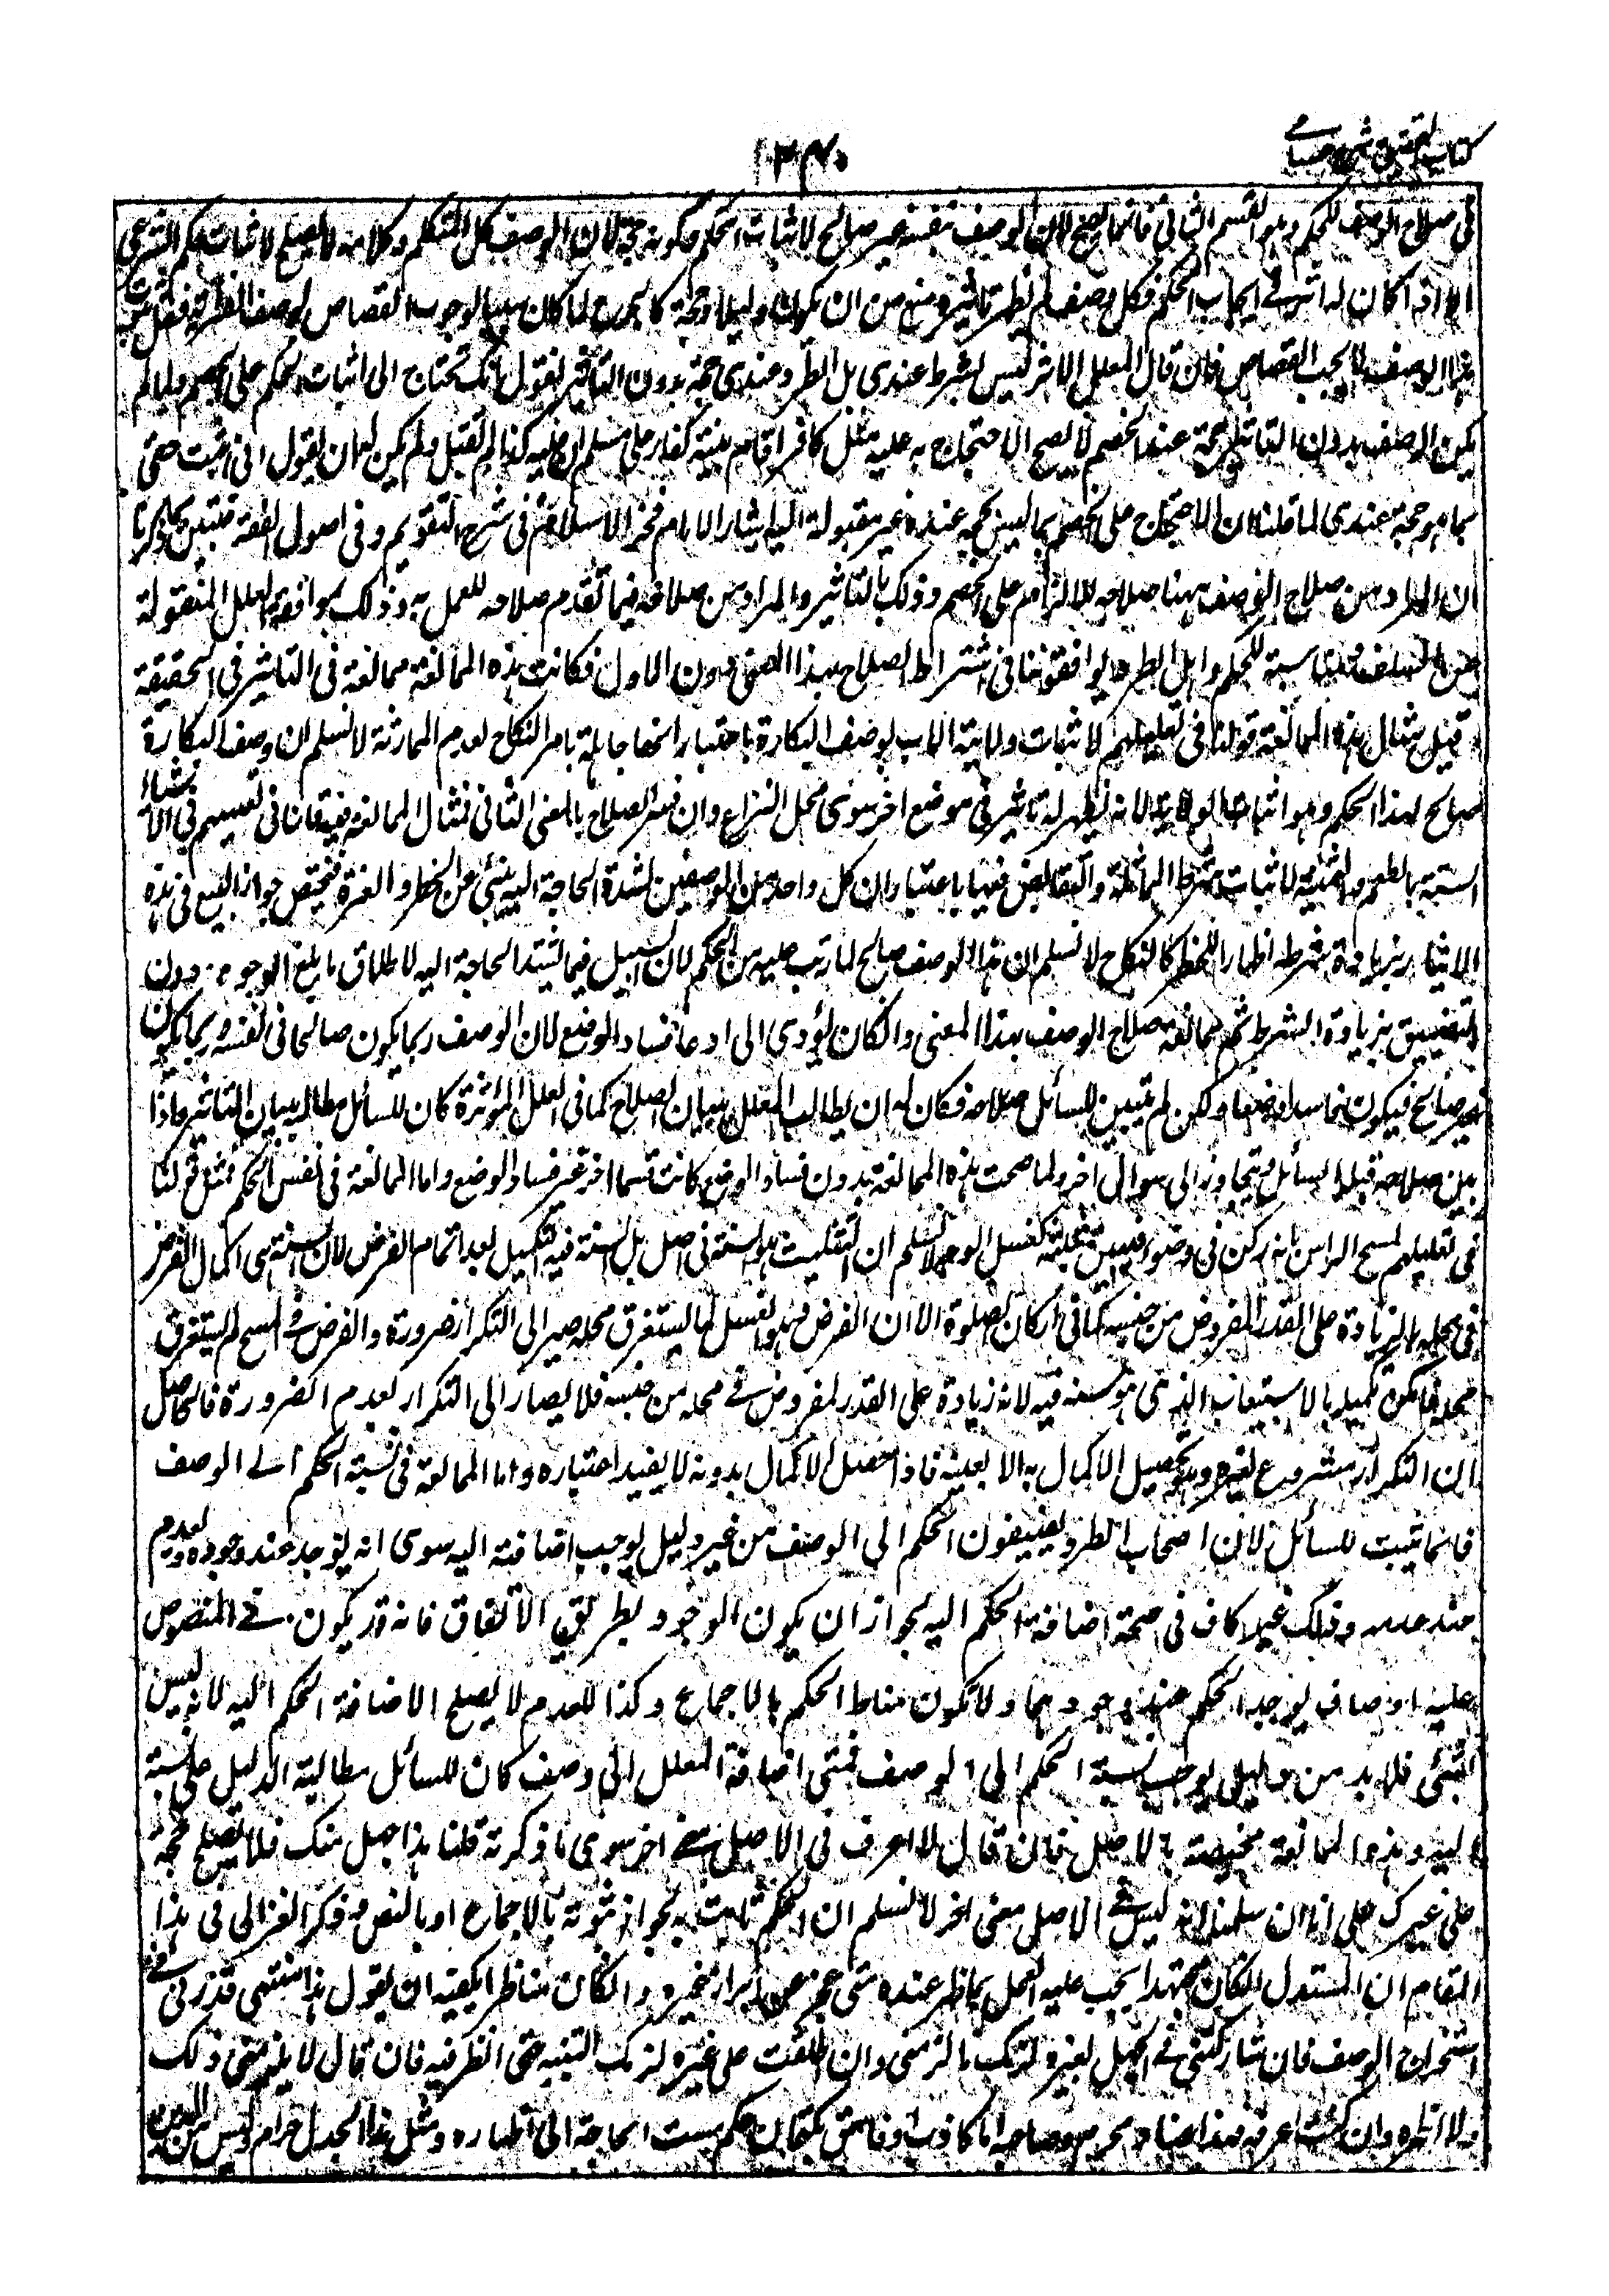 كتاب التحقيق شرح حسامي
٣٤٠
في صلاح الوصف للحكم وهو القسم الثاني فانما يصح لان الوصف بنفسه غير صالح لاثبات الحكم وكونه حجة لان الوصف كل المتكلم وكلامه لا يصلح لاثبات حكم الشرعي
الا اذا كان له اثر في ايجاب الحكم فكل وصف لم يظهر تاثيره منع من ان يكون دليلا وحجة كالجرح لما كان سببا لوجوب القصاص لوصف
هذا الوصف لا يجب القصاص فان قال المعلل الاثر ليس بشرط عندي بل الطرد عندي حجة بدون التاثير نقول انك تحتاج الى اثبات الحكم على الخصم ولما لم
يكن الوصف بدون التاثير حجة عند الخصم لا يصح الاحتجاج به عليه مثل كافر اقام بينة كفار على مسلم لم تقبل ولم يكن له ان يقول اني اثبت حقي
بما هو حجة عندي لما قلنا ان الاحتجاج على الخصم بما ليس بحجة عنده غير مقبولة اليه اشار الامام فخر الاسلام في شرح التقويم وفي اصول الفقه فتبين بما ذكرنا
ان المراد من صلاح الوصف ههنا صلاحه للالزام على الخصم وذلك بالتاثير والمراد من صلاحه فيما تقدم صلاحه للعمل به وذلك بموافقة العلل المنقولة
عن السلف ومناسبة للحكم واهل الطرد يوافقوننا في اشتراط الصلاح بهذا المعنى دون الاول فكانت هذه الممانعة ممانعة في التاثير في الحقيقة
قيل مثال هذه الممانعة قولنا في تعليلهم لاثبات ولاية الاب لوصف البكارة باعتبار انها جاهلة بامر النكاح لعدم الممارسة لا نسلم ان وصف البكارة
صالح لهذا الحكم وهو اثبات الولاية لانه لم يظهر له تاثير في موضع اخر سوى محل النزاع وان فسر الصلاح بالمعنى الثاني فمثال الممانعة فيه قلنا في تعليلهم في الاشياء
الستة بالطعم والثمنية لاثبات شرط المماثلة والتقابض فيها باعتبار ان كل واحد من الوصفين لشدة الحاجة اليه ينبئ عن الخطر والعزة فيختص جواز البيع في هذه
الاشياء بزيادة شرط اظهارا للخطر كالنكاح لا نسلم ان هذا الوصف صالح لما رتب عليه من الحكم لان السبيل فيما تشتد الحاجة اليه الاطلاق بابلغ الوجوه دون
التضييق بزيادة الشرط ثم ممانعة صلاح الوصف بهذا المعنى وان كان يؤدي الى ادعاء فساد الوضع لان الوصف ربما يكون صالحا في نفسه وربما يكون
غير صالح فيكون فاسدا وضعا ولكن لم يتبين للسائل صلاحه فكان له ان يطالب المعلل ببيان الصلاح كما في العلل المؤثرة كان للسائل مطالبة بيان التاثير فاذا
بين صلاحه قبله السائل او تجاوز الى سوال اخر ولما صحت هذه الممانعة بدون فساد الوضع كانت قسما اخر غير فساد الوضع واما الممانعة في نفس الحكم فمثل قولنا
في تعليلهم لمسح الراس بانه ركن في وضوء فيسن تثليثه كغسل الوجه لا نسلم ان التثليث هو السنة في اصل بل السنة فيه التكميل بعد اتمام الفرض لان السنة هي اكمال الفرض
في محله بالزيادة على القدر المفروض من جنسه كما في اركان الصلوة الا ان الفرض وهو الغسل لما استغرق محله صير الى التكرار ضرورة والفرض في المسح لم يستغرق
محله فامكن تكميله بالاستيعاب الذي هو سنة فيه لانه زيادة على القدر المفروض في محله من جنسه فلا يصار الى التكرار لعدم الضرورة فالحاصل
ان التكرار مشروع لغيره وهو تحصيل الاكمال به لا لعينه فاذا حصل الاكمال بدونه لا يفيد اعتباره واما الممانعة في نسبة الحكم الى الوصف
فانما تثبت للسائل لان اصحاب الطرد يضيفون الحكم الى الوصف من غير دليل يوجب اضافته اليه سوى انه يوجد عند وجوده ويعدم
عند عدمه وذلك غير كاف في صحة اضافة الحكم اليه لجواز ان يكون الوجود بطريق الاتفاق فانه قد يكون في المنصوص
عليه اوصاف يوجد الحكم عند وجودها ولا تكون مناط الحكم بالاجماع وكذا العدم لا يصلح لاضافة الحكم اليه لانه ليس
بشيء فلا بد من دليل يوجب نسبة الحكم الى الوصف فمتى اضافة المعلل الى وصف كان للسائل مطالبة الدليل على نسبته
اليه وهذه الممانعة مختصة بالاصل فان قال لا اعرف في الاصل معنى اخر سوى ما ذكرته قلنا هذا جهل منك فلا يصلح حجة
على غيرك على انا ان سلمنا انه ليس في الاصل معنى اخر لا نسلم ان الحكم ثابت به لجواز ثبوته بالاجماع او بالنص وذكر الغزالي في هذا
المقام ان المستدل ان كان مجتهدا يجب عليه العمل بما ظهر عنده متى عجز عن ابراز غيره وان كان مناظرا يكفيه ان يقول هذا منتهى قدرتي في
استخراج الوصف فان شاركتني في الجهل بغيره لزمك ما لزمني وان اطلعت على غيره لزمك التنبيه حتى انظر فيه فان قال لا يلزمني ذلك
ولا اظهره وان كنت اعرفه فهذا عناد محرم وصاحبه اما كاذب او فاسق بكتمان حكم مست الحاجة الى اظهاره ومثل هذا الجدل حرام وليس من الدين